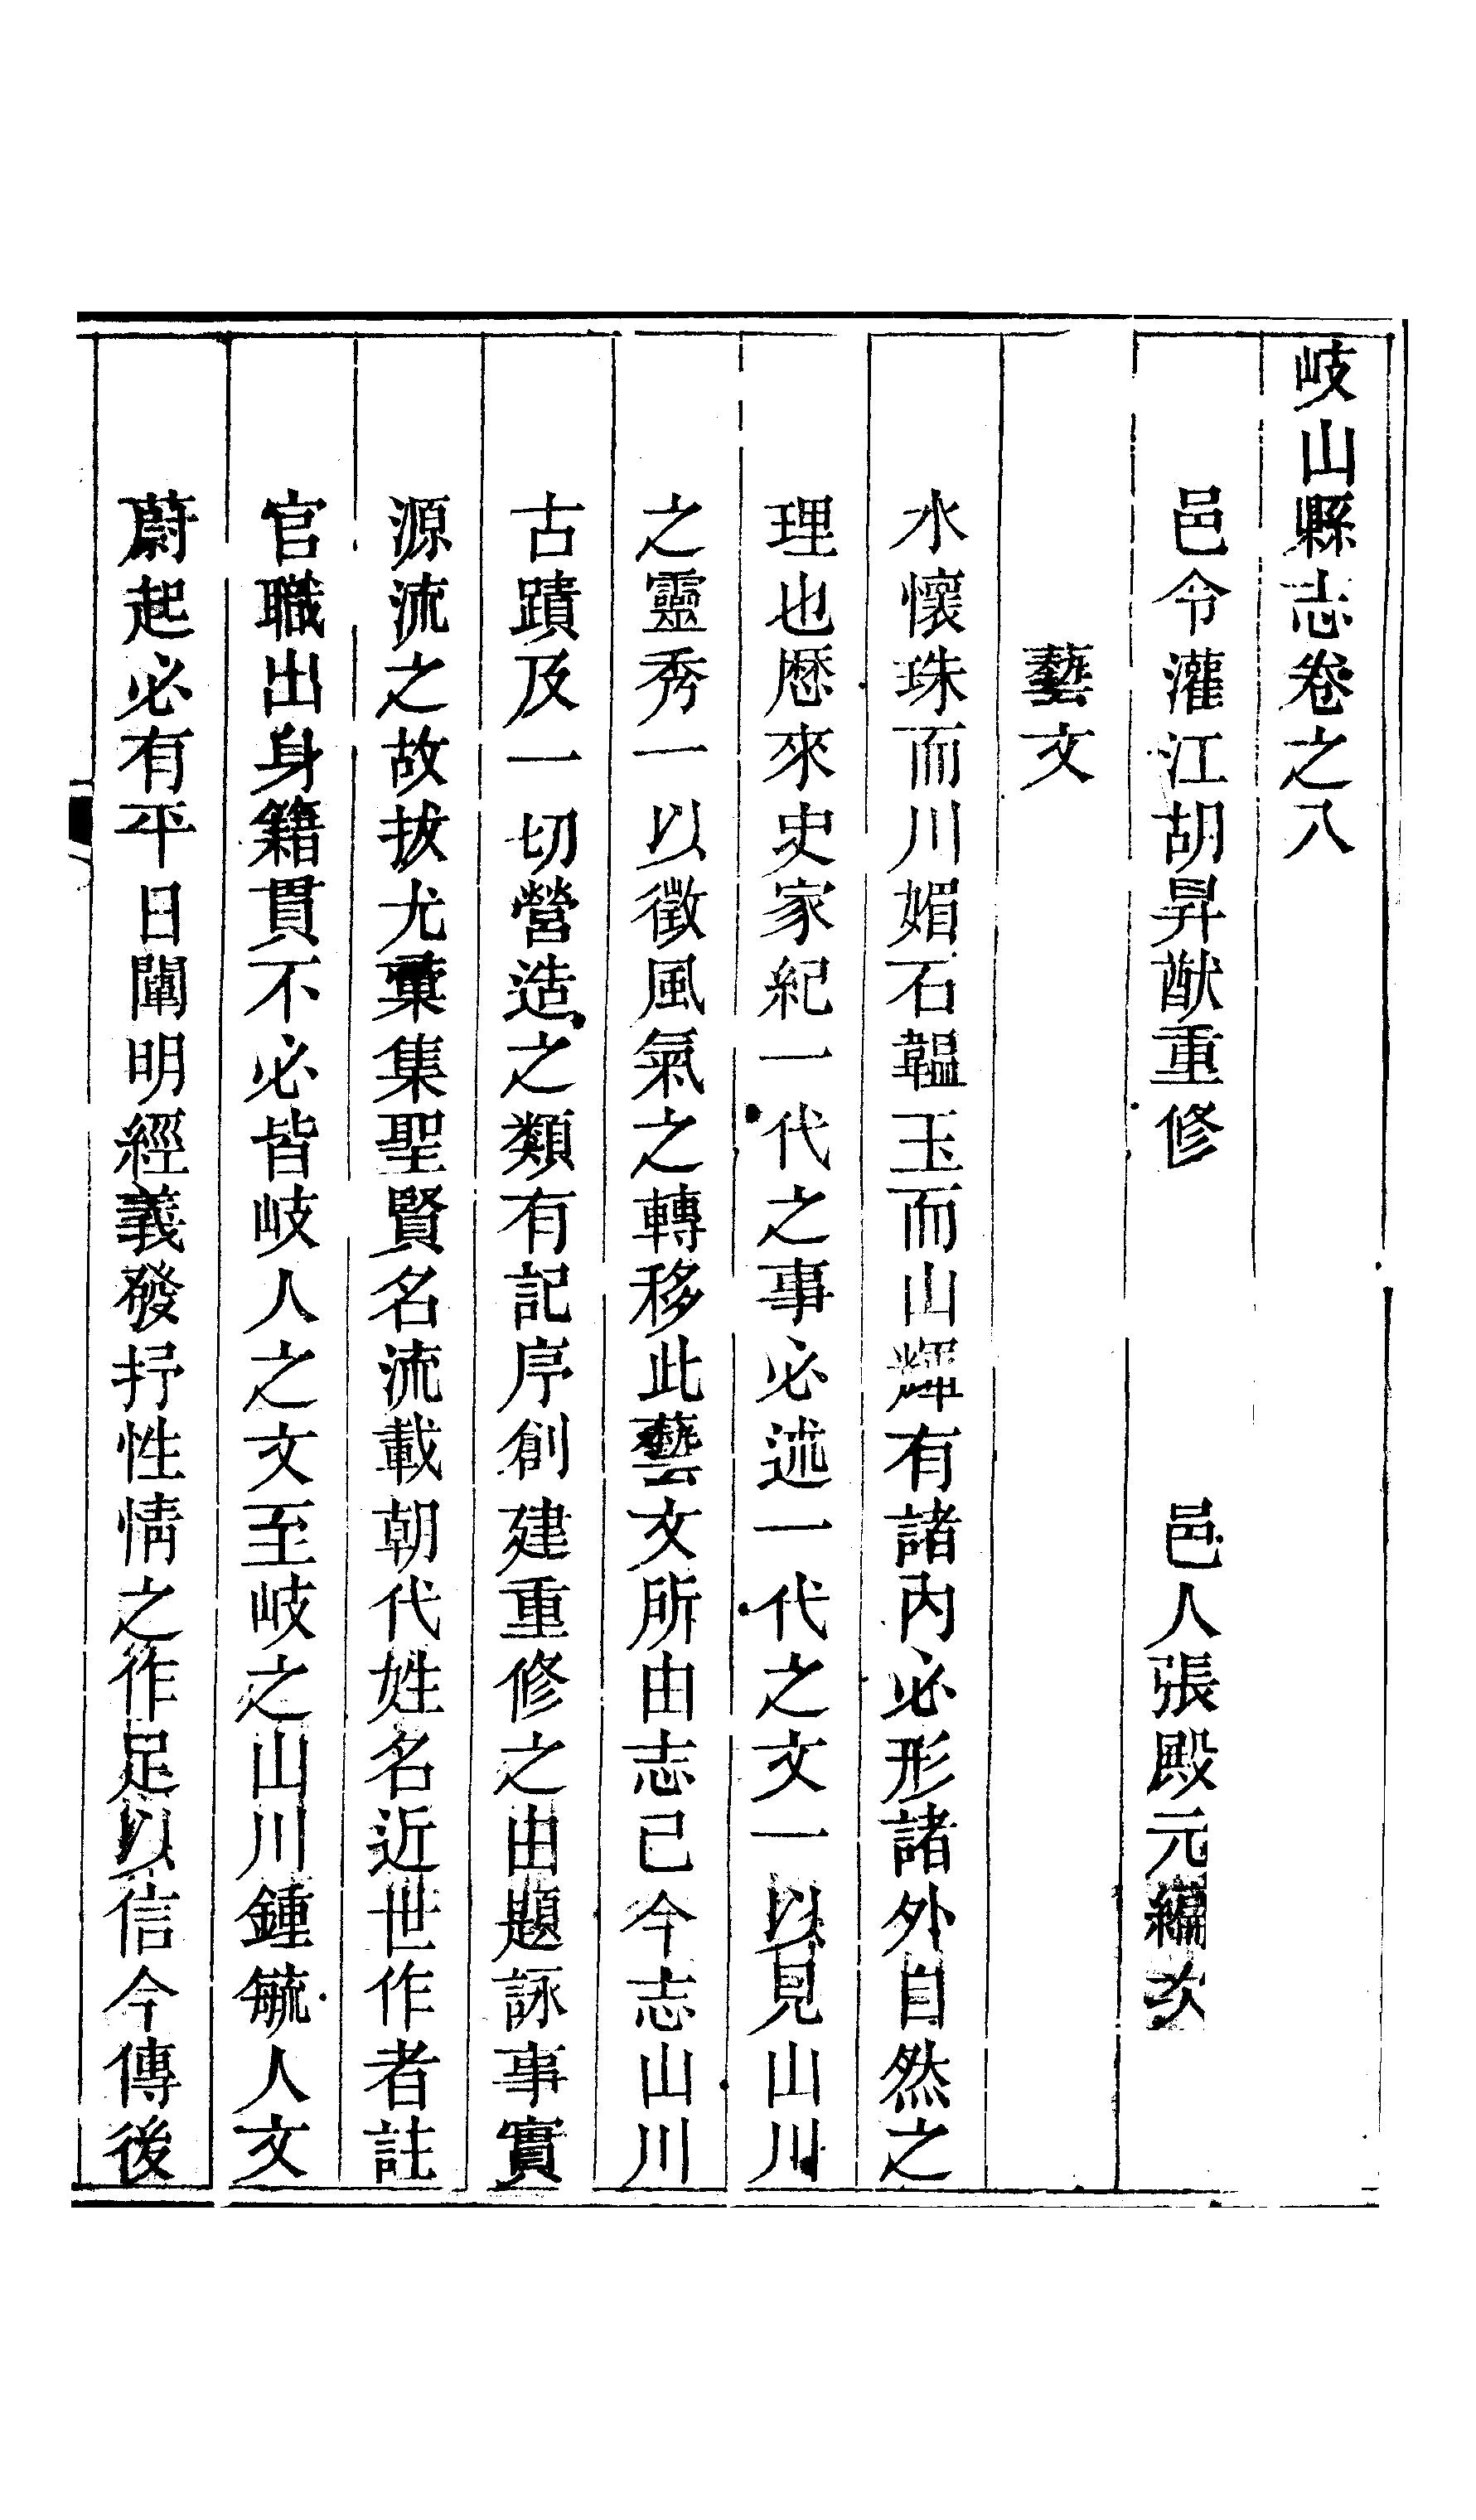 岐山縣志卷之八
邑令灌江胡昇猷重修　　邑人張殿元編次
藝文
水懷珠而川媚石韞玉而山輝有諸內必形諸外自然之
理也歷來史家紀一代之事必述一代之文一以見山川
之靈秀一以徵風氣之轉移此藝文所由志已今志山川
古蹟及一切營造之類有記序創建重修之由題詠事實
源流之故拔尤彙集聖賢名流載朝代姓名近世作者註
官職出身籍貫不必皆岐人之文至岐之山川鍾毓人文
蔚起必有平日闡明經義發抒性情之作足以信今傳後